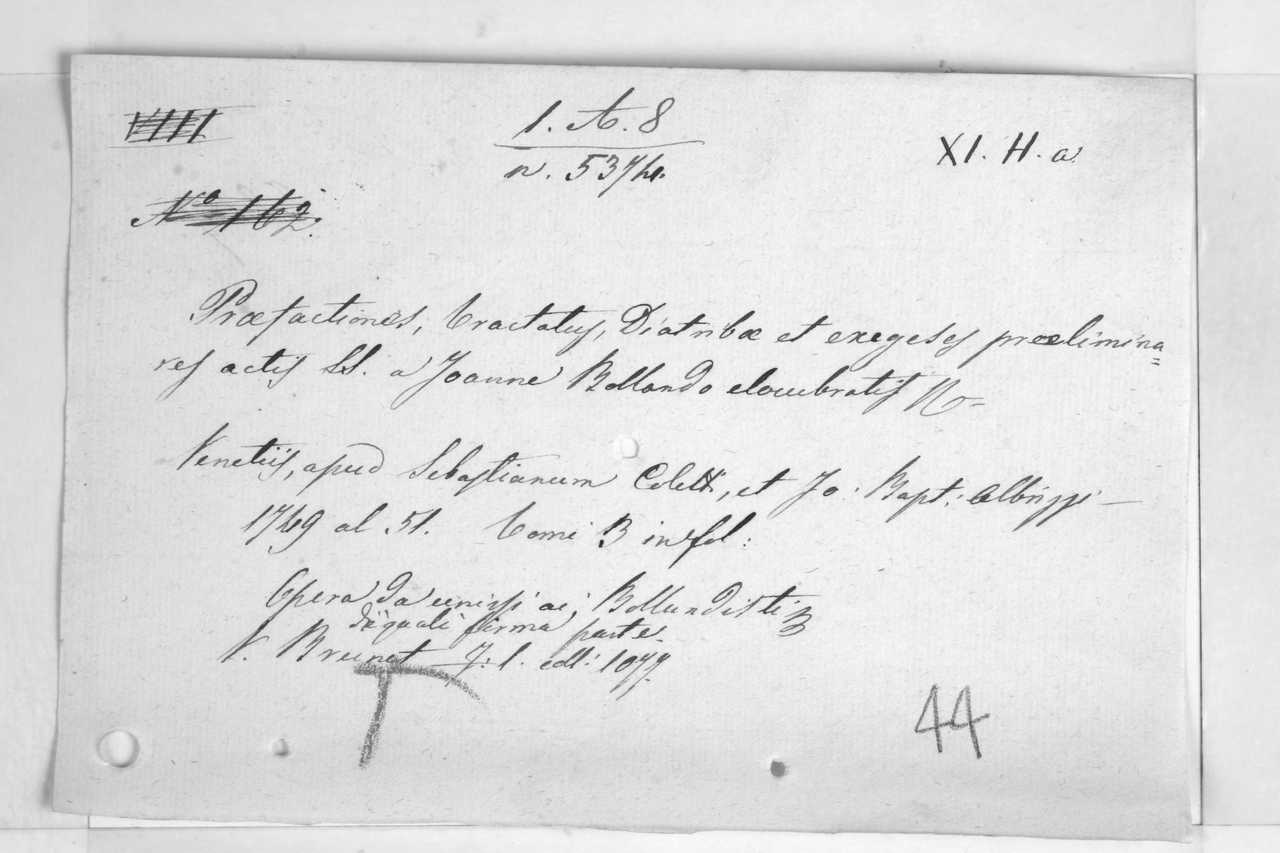 VIIII
1. A. 8
n. 5374.
XI. H. a.
Nº 162.
Præfactiones, tractatus, Diatribæ et exegeses prælimina=
res actis SS. a Joanne Bollando elocubratis
Venetiis, apud Sebastianum Coleti, et Jo: Bapt: Albrizzi
1749 al 51. Tomi 3 in fol:
Opera da unirsi ai Bollandisti
di quali firma parte.
V. Brunet T. 1. coll: 1077.
T
44